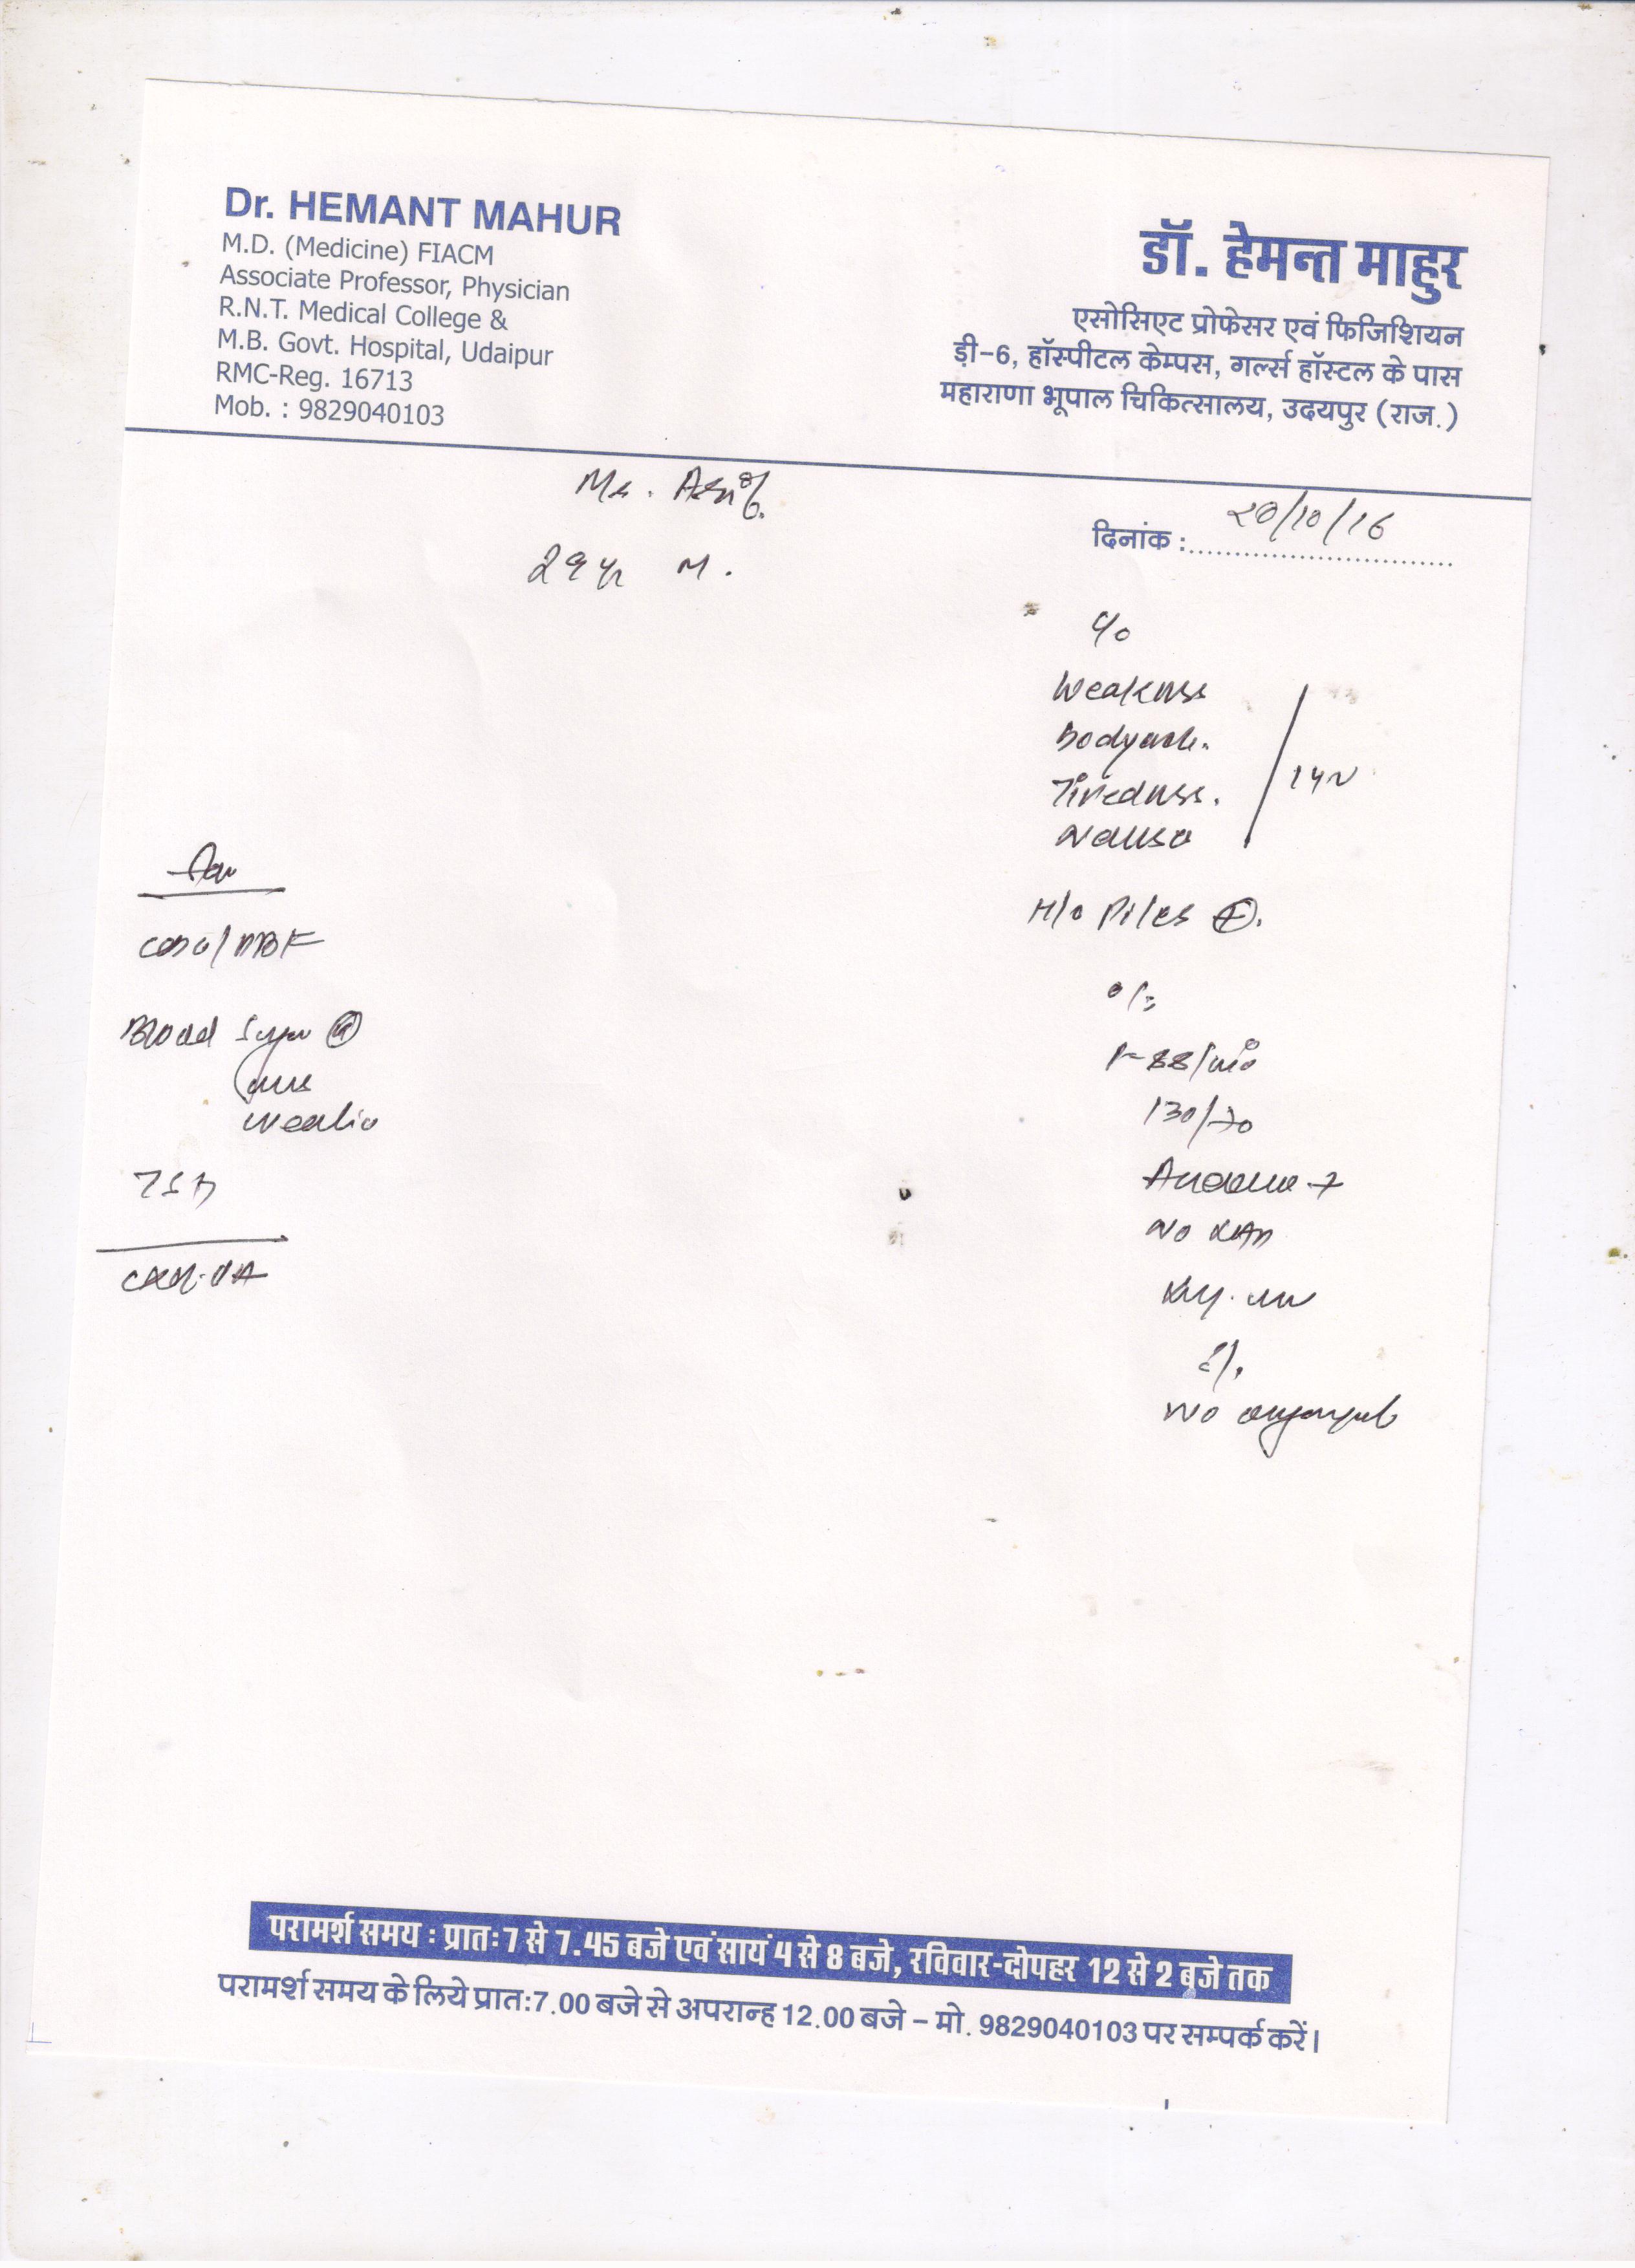 Dr. HEMANT MAHUR
M.D. (Medicine) FIACM
Associate Professor, Physician
R.N.T. Medical College &
M.B. Govt. Hospital, Udaipur
RMC-Reg. 16713
Mob. : 9829040103
डॉ. हेमन्त माहुर
एसोसिएट प्रोफेसर एवं फिजिशियन
ड़ी-6, हॉस्पीटल केम्पस, गर्ल्स हॉस्टल के पास
महाराणा भूपाल चिकित्सालय, उदयपुर (राज.)
Mr. Asif
29 yr M.
दिनांक : 20/10/16
C/o
Weakness
Bodyache.
Tiredness.
Nausea
H/o Piles ⊕.
O/E
P-88/min
130/70
No LAP
Blood Sugar
Urea
TSH
परामर्श समय : प्रातः 7 से 7.45 बजे एवं सायं 4 से 8 बजे, रविवार-दोपहर 12 से 2 बजे तक
परामर्श समय के लिये प्रात:7.00 बजे से अपरान्ह 12.00 बजे – मो. 9829040103 पर सम्पर्क करें।